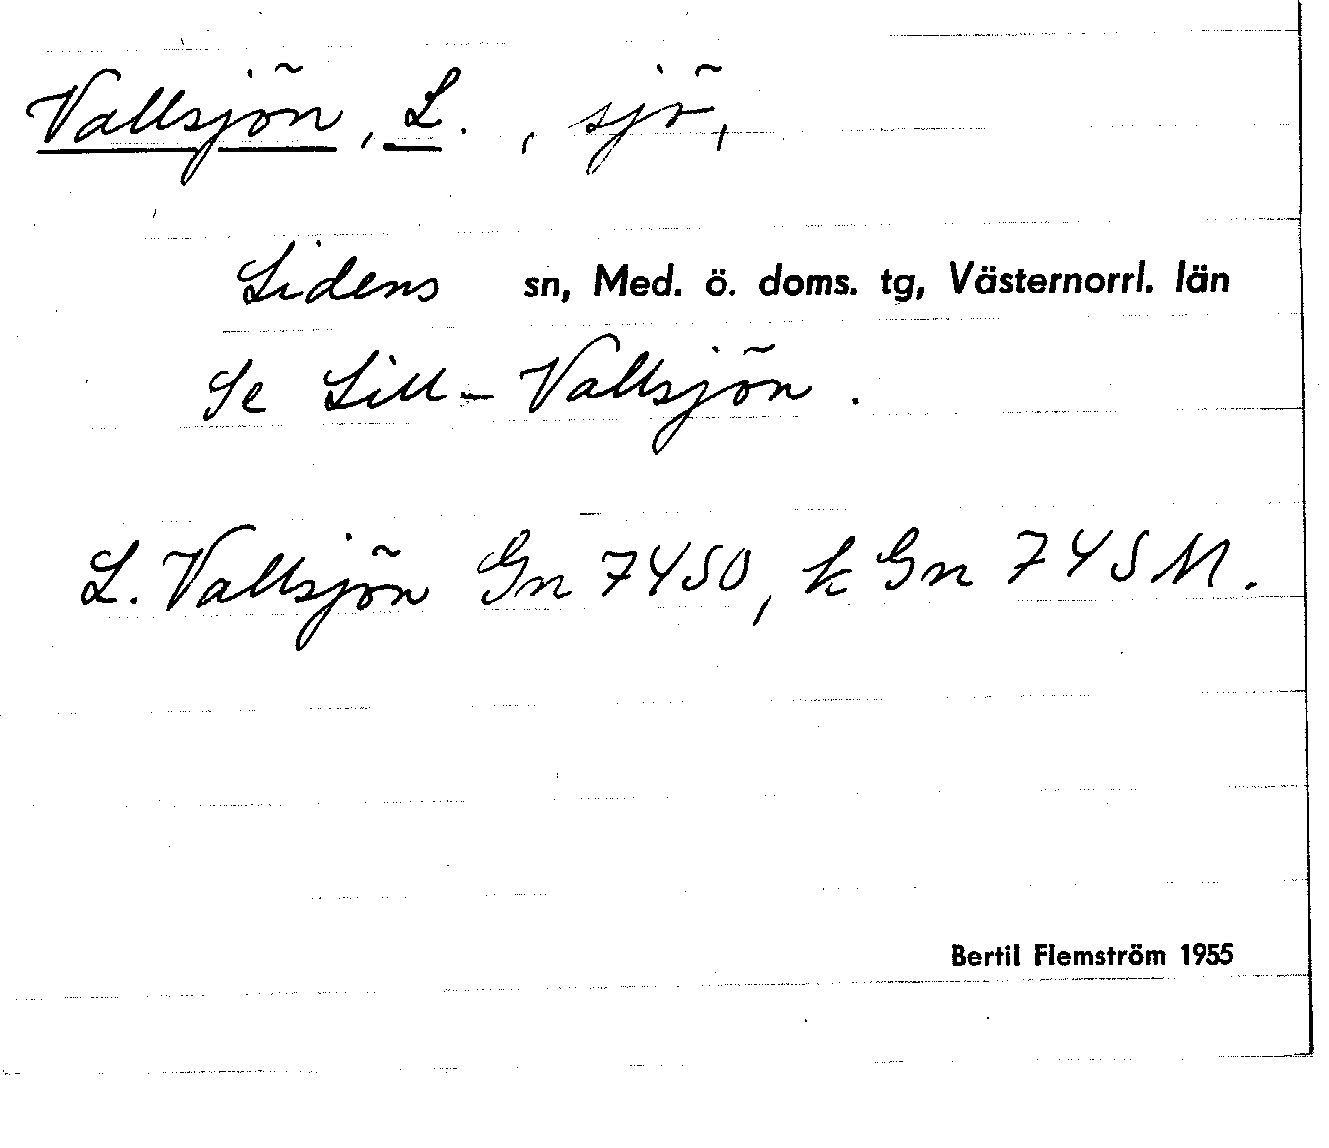 Vallsjön, L., sjö,
Lidens sn, Med. ö. doms. tg, Västernorrl. län
Se Lill-Vallsjön.
L. Vallsjön Gn 7450, k Gn 745M.
Bertil Flemström 1955